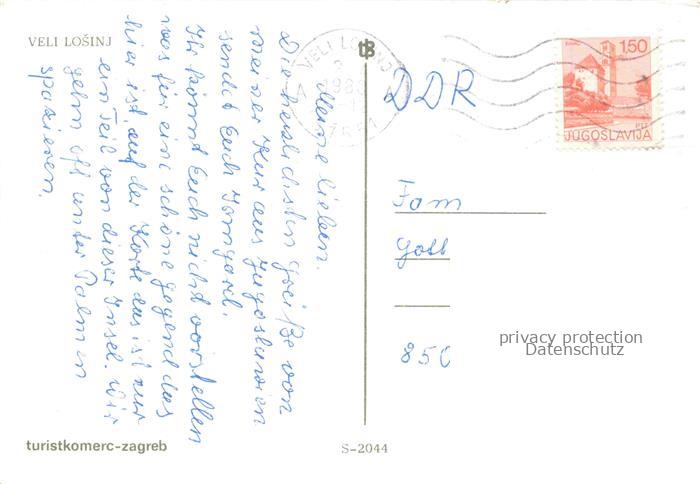 VELI LOŠINJ
Meine Lieben.
Die herzlichsten Grüße von
meiner Kur aus Jugoslawien
sendet Euch Irmgard.
Ihr könnt Euch nicht vorstellen
was für eine schöne Gegend das
hier ist auf der Karte das ist nur
ein Teil von dieser Insel. Wir
gehn oft unter Palmen
spazieren.
turistkomerc-zagreb
S-2044
tB
VELI LOŠINJ
DDR
1,50
JUGOSLAVIJA
Fam
850
privacy protection
Datenschutz